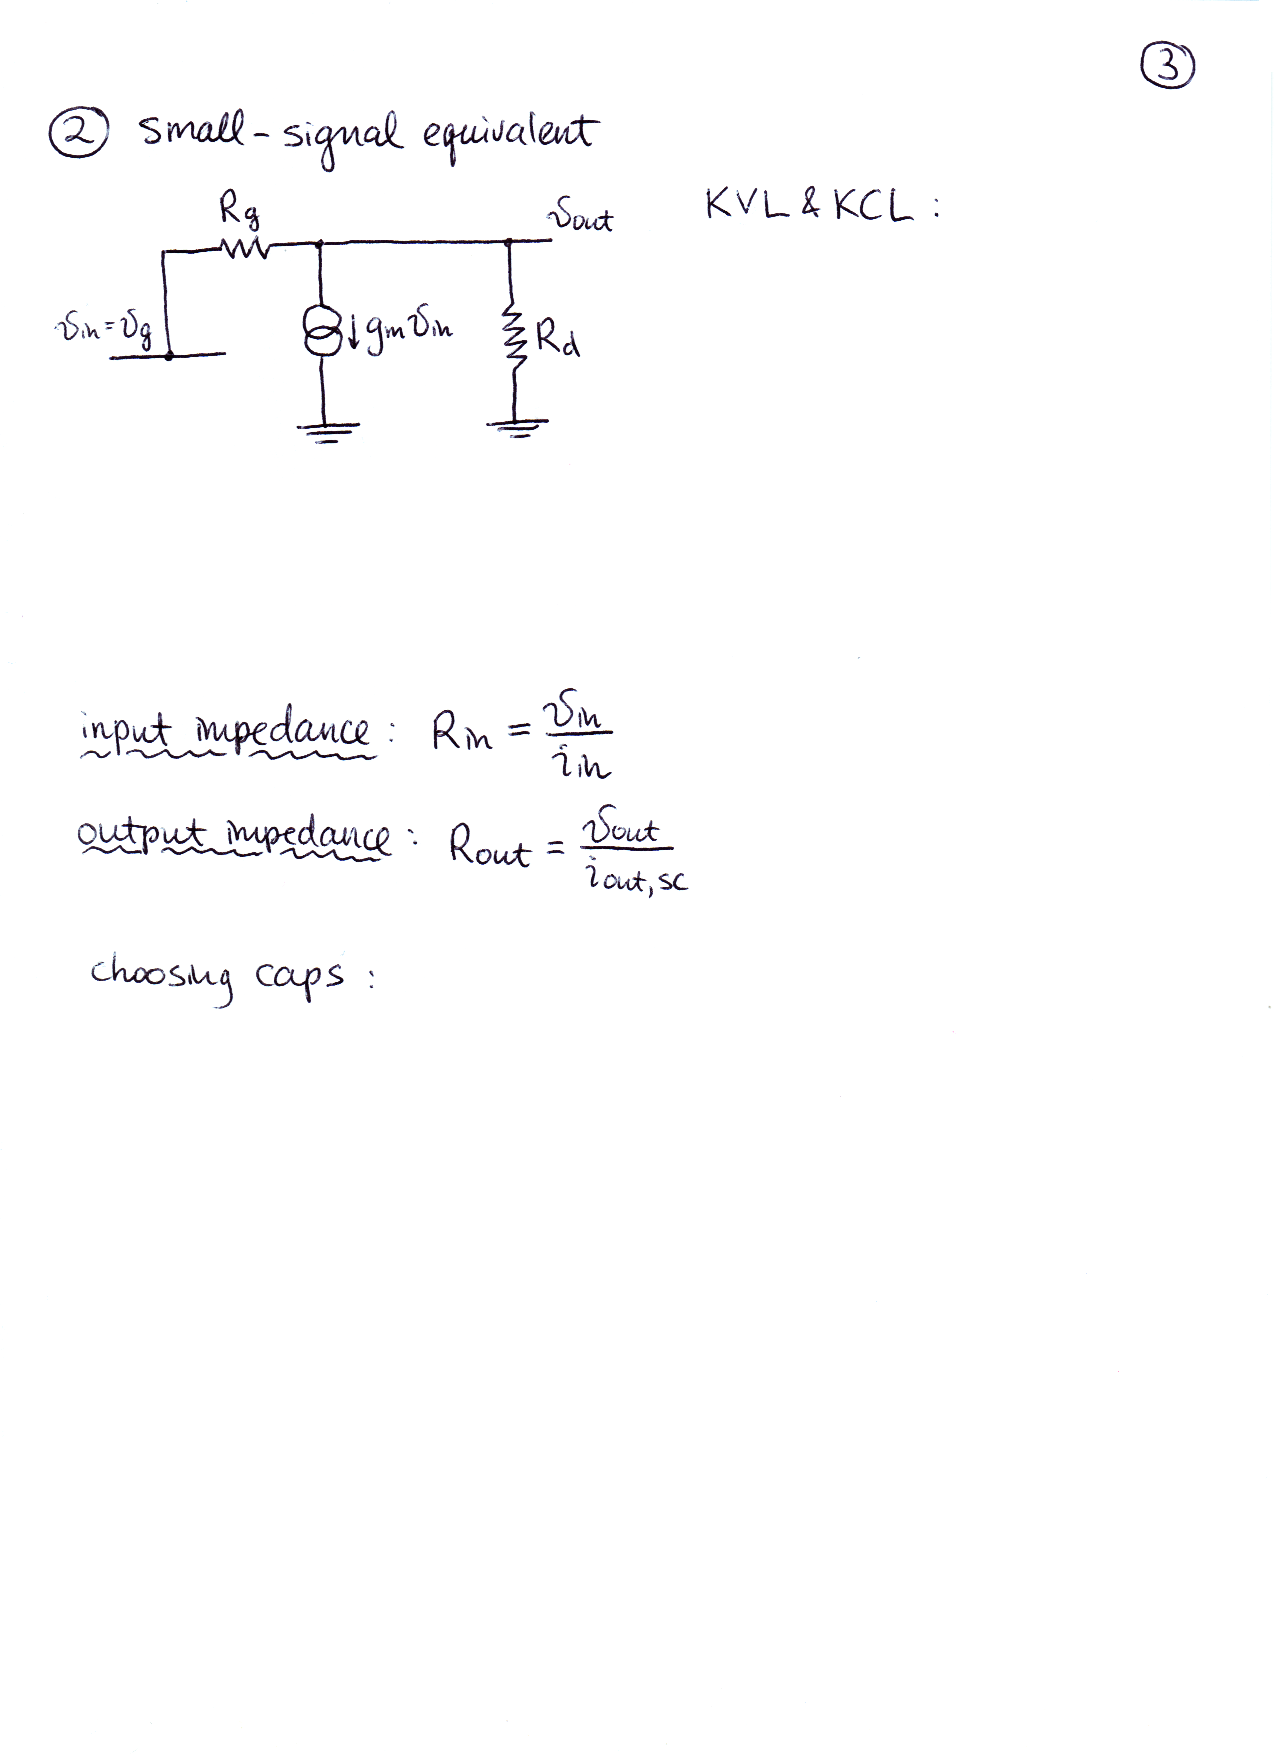 ③
② small-signal equivalent
KVL & KCL :
Rg
vout
vin = vg
↓ gm vin
Rd
input impedance : Rin = vin / iin
output impedance : Rout = vout / iout,sc
choosing caps :